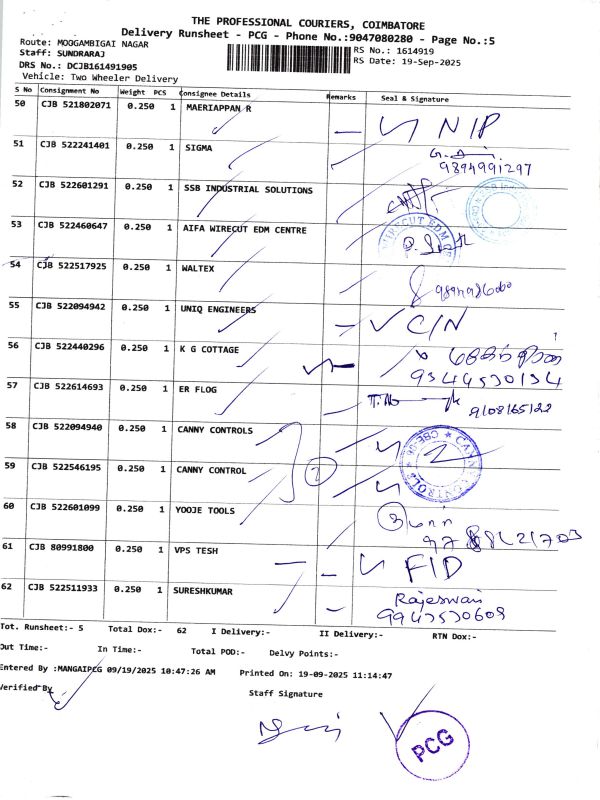 THE PROFESSIONAL COURIERS, COIMBATORE
Delivery Runsheet - PCG - Phone No.:9047080280 - Page No.:5
Route: MOOGAMBIGAI NAGAR
RS No.: 1614919
Staff: SUNDRARAJ
RS Date: 19-Sep-2025
DRS No.: DCJB161491905
Vehicle: Two Wheeler Delivery
S No Consignment No Weight PCS Consignee Details Remarks Seal & Signature
50 CJB 521802071 0.250 1 MAERIAPPAN R N/P
51 CJB 522241401 0.250 1 SIGMA
9894991297
52 CJB 522601291 0.250 1 SSB INDUSTRIAL SOLUTIONS
53 CJB 522460647 0.250 1 AIFA WIRECUT EDM CENTRE WIRECUT EDM
54 CJB 522517925 0.250 1 WALTEX
55 CJB 522094942 0.250 1 UNIQ ENGINEERS C/N
56 CJB 522440296 0.250 1 K G COTTAGE
9344530134
57 CJB 522614693 0.250 1 ER FLOG
58 CJB 522094940 0.250 1 CANNY CONTROLS
2
59 CJB 522546195 0.250 1 CANNY CONTROL
60 CJB 522601099 0.250 1 YOOJE TOOLS 3
61 CJB 80991800 0.250 1 VPS TESH F/D
62 CJB 522511933 0.250 1 SURESHKUMAR Rajeswari
9943530609
Tot. Runsheet:- 5 Total Dox:- 62 I Delivery:- II Delivery:- RTN Dox:-
Out Time:- In Time:- Total POD:- Delvy Points:-
Entered By :MANGAIPCG 09/19/2025 10:47:26 AM Printed On: 19-09-2025 11:14:47
Verified By
Staff Signature
PCG